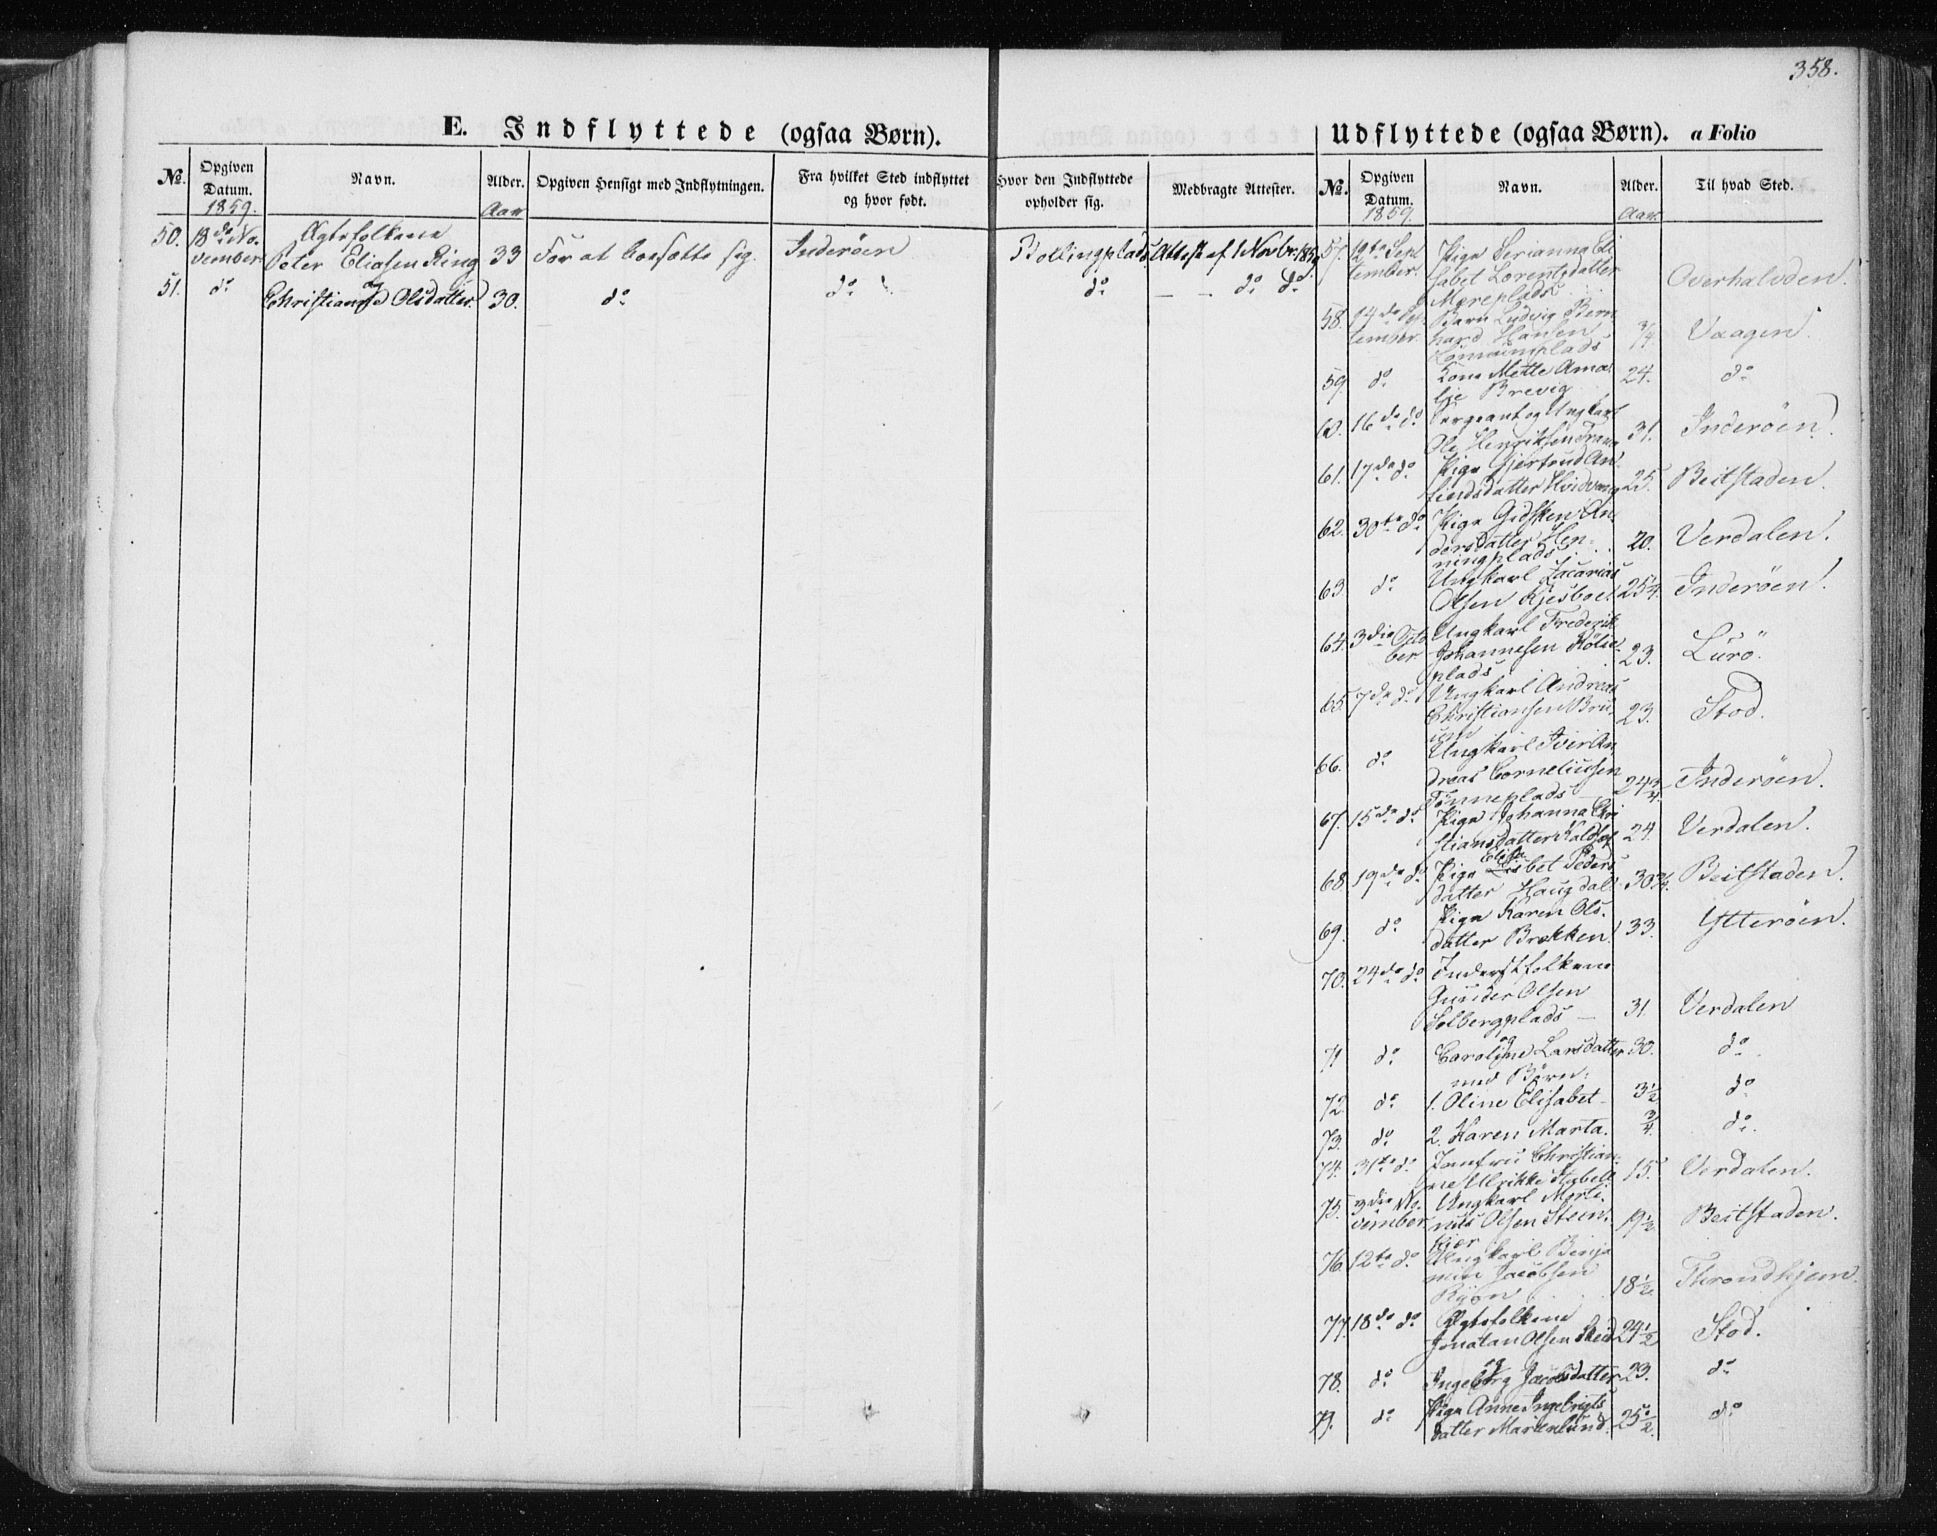 358.
E. Indflyttede (ogsaa Børn).
Udflyttede (ogsaa Børn). a Folio
No. Opgiven Datum. Navn. Alder. Opgiven Hensigt med Indflytningen. Fra hvilket Sted indflyttet og hvor født. Hvor den Indflyttede opholder sig. Medbragte Attester.
1859. Aar
50. 18de No- Ægtefolkene
vember Peter Eliasen Ring 33 For at bosætte sig. Inderöen Bollingplads Attest af 1 Novbr. 1859.
og
51. do Christianne Olsdatter 30. do do do do do
No. Opgiven Datum. Navn. Alder. Til hvad Sted.
1859. Aar.
57. 12te Sept Pige Serianna Eli
tember. sabet Lorentsdatter
Mæreplads Overhalvden.
58. 14de Sep Barn Ludvig Bern
tember. hard Hansen 3/4 Vaagen.
59. do Kone Mette Ama
lie Brevig 24. do
60. 16de do Sergeant og Ungkarl
Ole Henriksen Trana 31. Inderöen.
61. 17de do Pige Gjertrud An
findsdatter Hvidvang 25. Beitstaden.
62. 30te do Pige Gidsken An
dersdatter Hen-
ningplads 20. Verdalen.
63. do Ungkarl Zacarias
Olsen 25 1/4. Inderöen.
64. 3die Octo Ungkarl Frederik
ber Johannesen
plads 23. Lurö.
65. 7de do Ungkarl Andreas
Christiansen 23. Stod.
66. do Ungkarl Iver An
dreas Corneliussen
Tønneplads 24 3/4. Inderöen.
67. 15de do Pige Johanna Chri
stiansdatter 24 Verdalen.
68. 19de do Pige Elisabet Peders
datter Haugdal 30 3/4. Beitstaden.
69. do Pige Karen Ols-
datter Brekken 33. Ytteröen.
70. 24de do Inderstfolkene
Gunder Olsen
Solbergplads 31. Verdalen
og
71 do Caroline Larsdatter 30. do
med Börn:
72. do 1. Oline Elisabet 3 1/2 do
73. do 2. Karen Marta. 3/4. do
74. 31te do Jomfru Christian-
ne Ulrikke Stabell 15. Verdalen.
75. 3die No- Ungkarl Morte-
vember nus Olsen Stein-
kjær 19 1/2 Beitstaden.
76. 12te do Ungkarl Benja
min Jacobsen
18 1/2 Throndhjem.
77. 18de do Ægtefolkene
Jonatan Olsen Skeid 24 1/2 Stod.
og
78. do Ingeborg Jacobsdatter 23. do
79. do Pige Anne Ingebrigts
datter Marienlund. 25 1/2. do